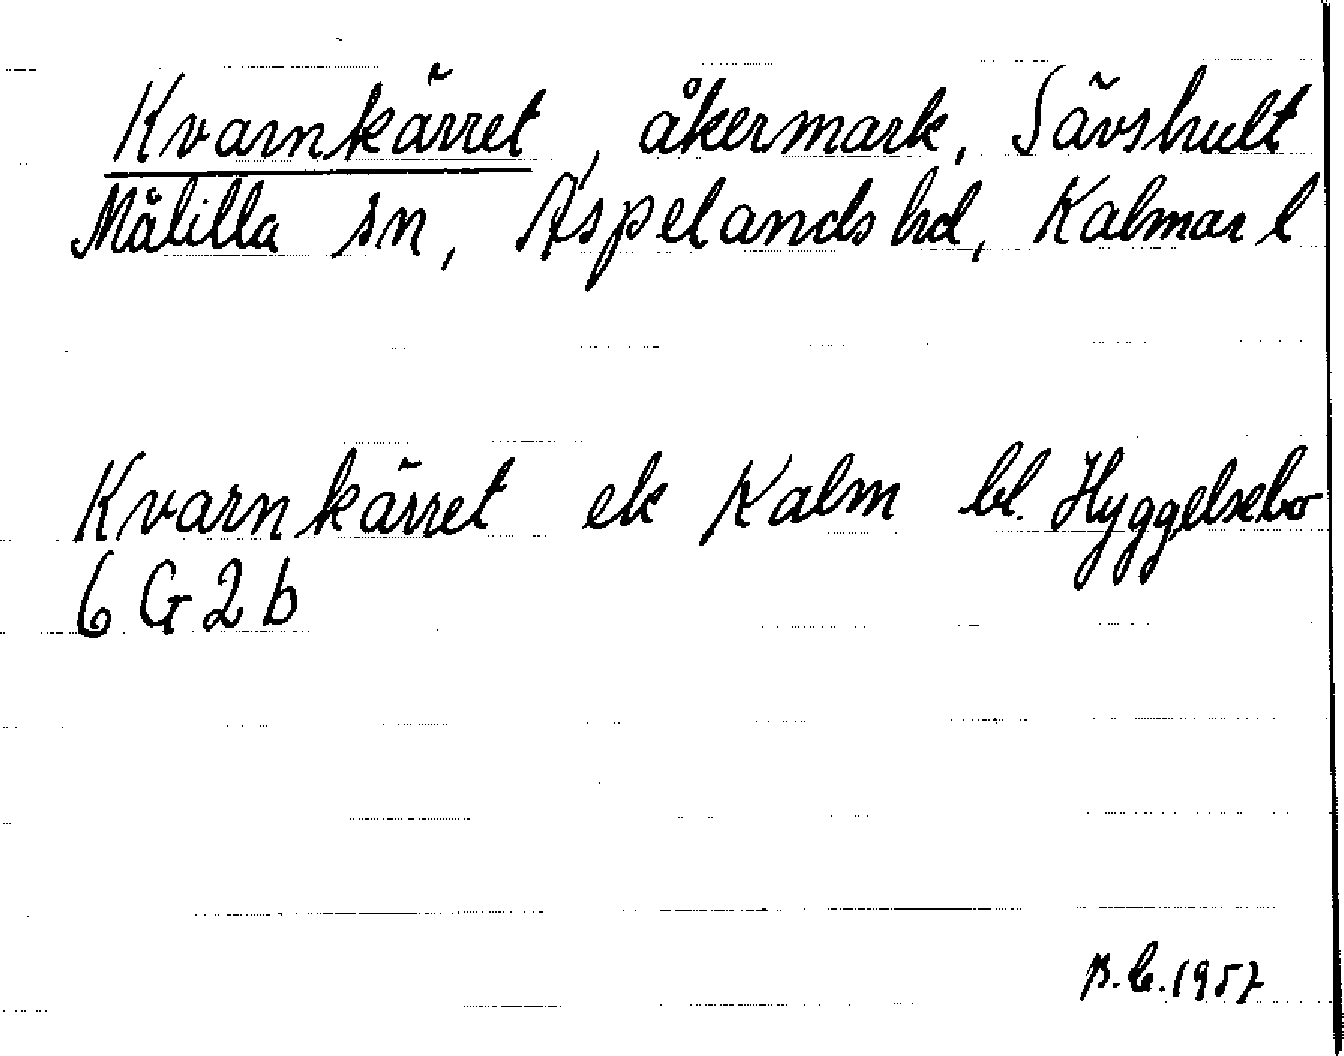 Kvarnkärret, åkermark, Sävshult
Målilla sn, Aspelands hd, Kalmar l
Kvarnkärret ek Kalm bl. Hyggelsebo
6 G 2 b
B.C. 1957